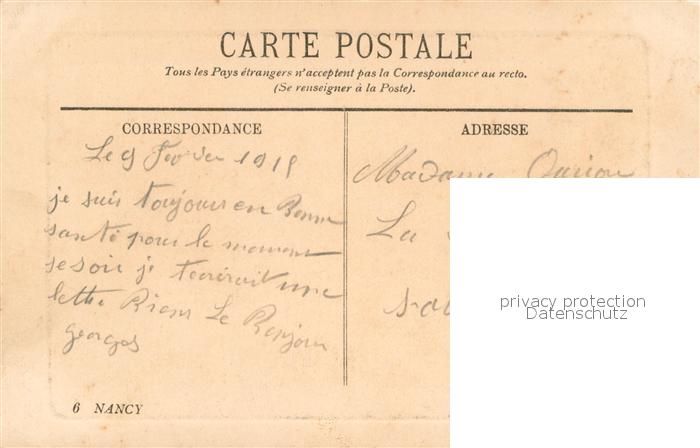 CARTE POSTALE
Tous les Pays étrangers n'acceptent pas la Correspondance au recto.
(Se renseigner à la Poste).
CORRESPONDANCE
ADRESSE
Le 9 Fevrier 1915
je suis toujours en Bonne
santé pour le moment
se soir je
une
lettre Bien Le Bonjour
georges
Madame
La
6 NANCY
privacy protection
Datenschutz